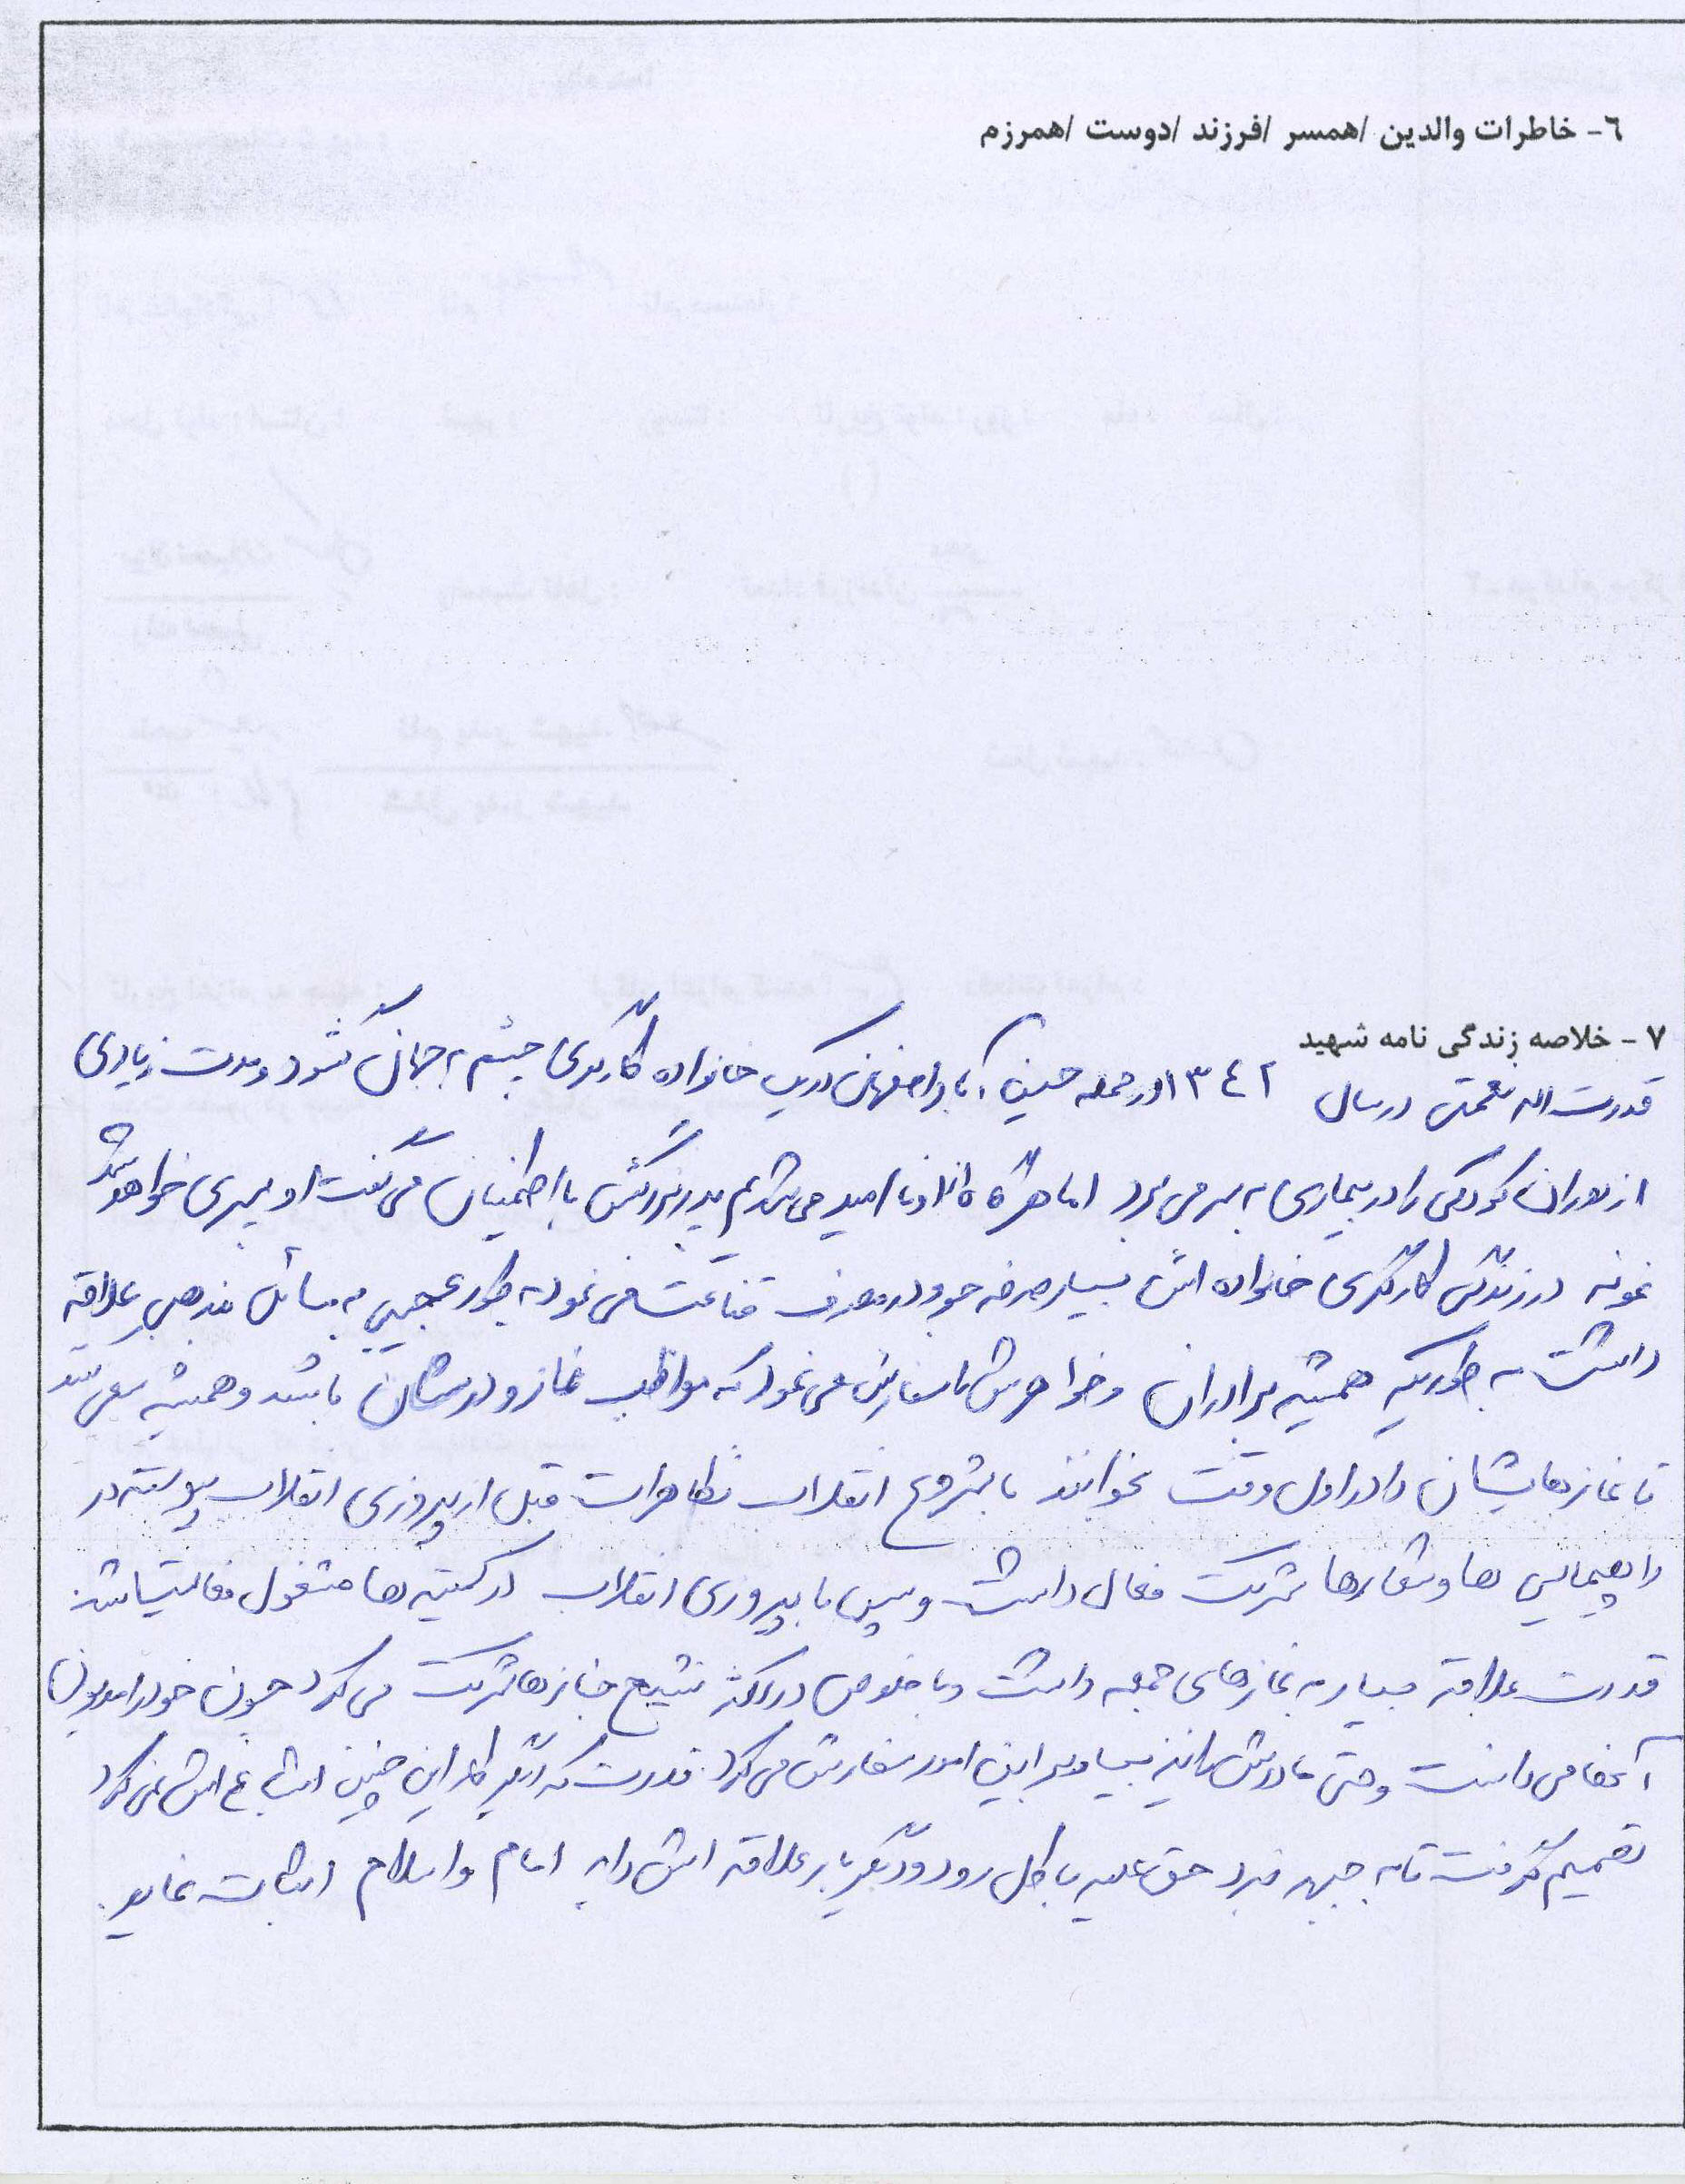 ٦- خاطرات والدین /همسر /فرزند /دوست /همرزم
٧- خلاصه زندگی نامه شهید
قدرت اله نعمتی در سال ١٣٤٢ در محله حسین آباد اصفهان در یک خانواده کارگری چشم به جهان گشود و مدت زیادی
از دوران کودکی را در بیماری به سر می برد اما هرگاه از او نا امید می شدیم پدربزرگش با اطمینان می گفت او پسری خواهد شد
نمونه در زندگی کارگری خانواده اش بسیار صرفه جو و در مصرف قناعت می نمود به طور عجیبی به مسائل مذهبی علاقه
داشت به طوریکه همیشه برادران و خواهرش را سفارش می نمود که مواظب نماز و درسشان باشند و همیشه سعی کنند
تا نمازهایشان را در اول وقت بخوانند با شروع انقلاب تظاهرات قبل از پیروزی انقلاب پیوسته در
راهپیمایی ها و شعارها شرکت فعال داشت و سپس با پیروزی انقلاب در کمیته ها مشغول فعالیت شد.
قدرت علاقه بسیار به نمازهای جمعه داشت و با خلوص در اکثر تشییع جنازه ها شرکت می کرد چون خود را مدیون
آنها می دانست و حتی مادرش را نیز بسیار بر این امور سفارش می کرد. قدرت که دیگر کار این چنین اشباع اش نمی کرد
تصمیم گرفت تا به جبهه نبرد حق علیه باطل رود و دیگر بار علاقه اش را به امام و اسلام اثبات نماید.